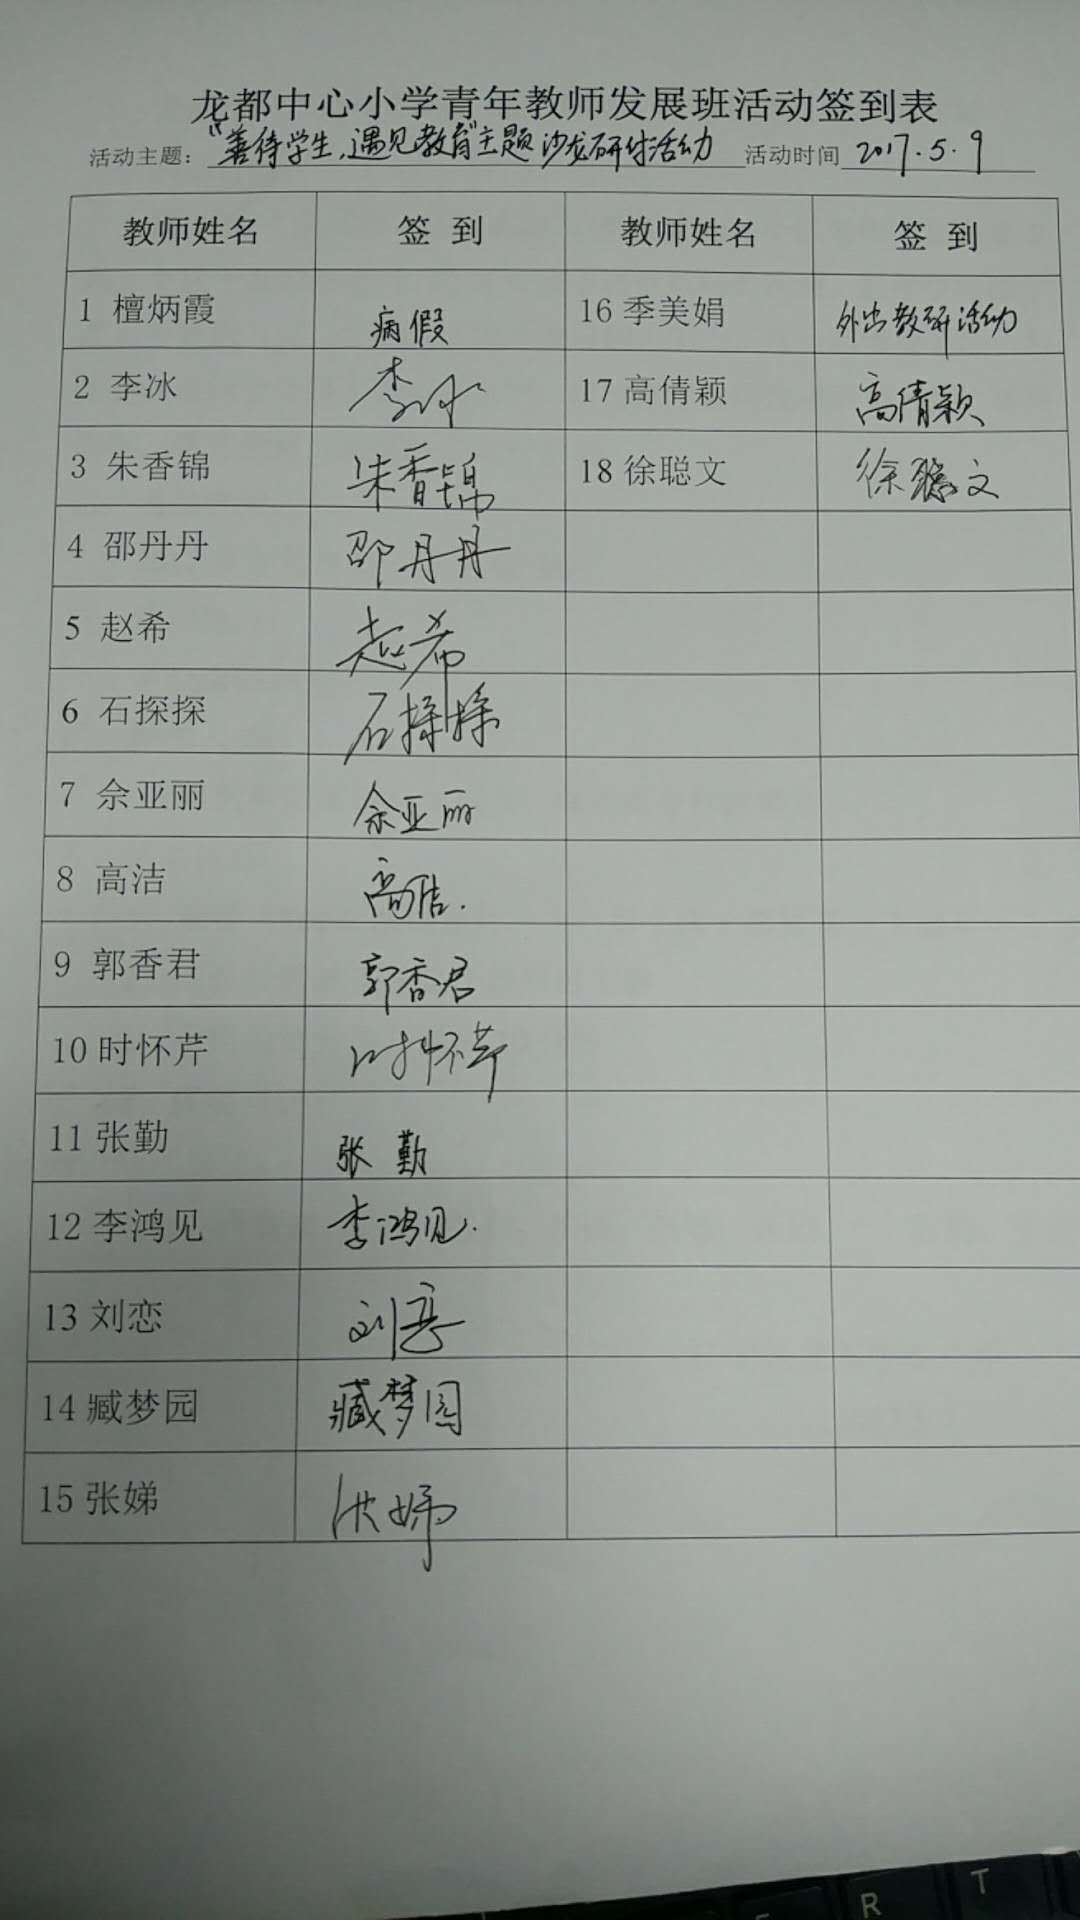 龙都中心小学青年教师发展班活动签到表
活动主题：“善待学生，遇见教育”主题沙龙研讨活动 活动时间 2017.5.9
教师姓名 签到 教师姓名 签到
1 檀炳霞 病假 16 季美娟 外出教研活动
2 李冰 李冰 17 高倩颖 高倩颖
3 朱香锦 朱香锦 18 徐聪文 徐聪文
4 邵丹丹 邵丹丹
5 赵希 赵希
6 石探探 石探探
7 佘亚丽 佘亚丽
8 高洁 高洁.
9 郭香君 郭香君
10 时怀芹 时怀芹
11 张勤 张勤
12 李鸿见 李鸿见.
13 刘恋 刘恋
14 臧梦园 臧梦园
15 张娣 张娣
R T